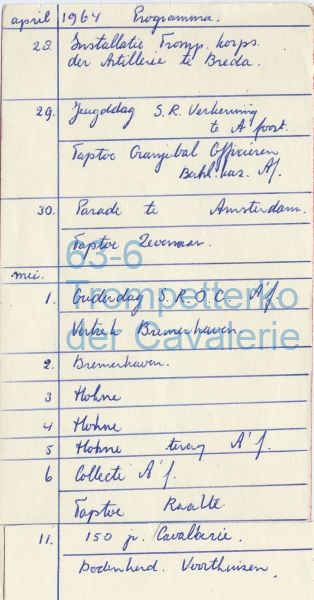 april 1964 Programma.
28. Installatie Tromp. korps.
der Artillerie te Breda.
29. Jeugddag S.R. Verkenning
te A'foort.
Taptoe Oranjebal Officieren
Berhl. kaz. A'f.
30. Parade te Amsterdam.
Taptoe Zevenaar.
63-6
Trompetterko
der Cavalerie
mei.
1. Ouderdag S.R.O.C. A'f.
Vertrek Bremerhaven.
2. Bremerhaven.
3 Hohne
4 Hohne
5 Hohne terug A'f.
6 Collecte A'f.
Taptoe Raalte
11. 150 jr. Cavallerie.
Dodenherd. Voorthuizen.